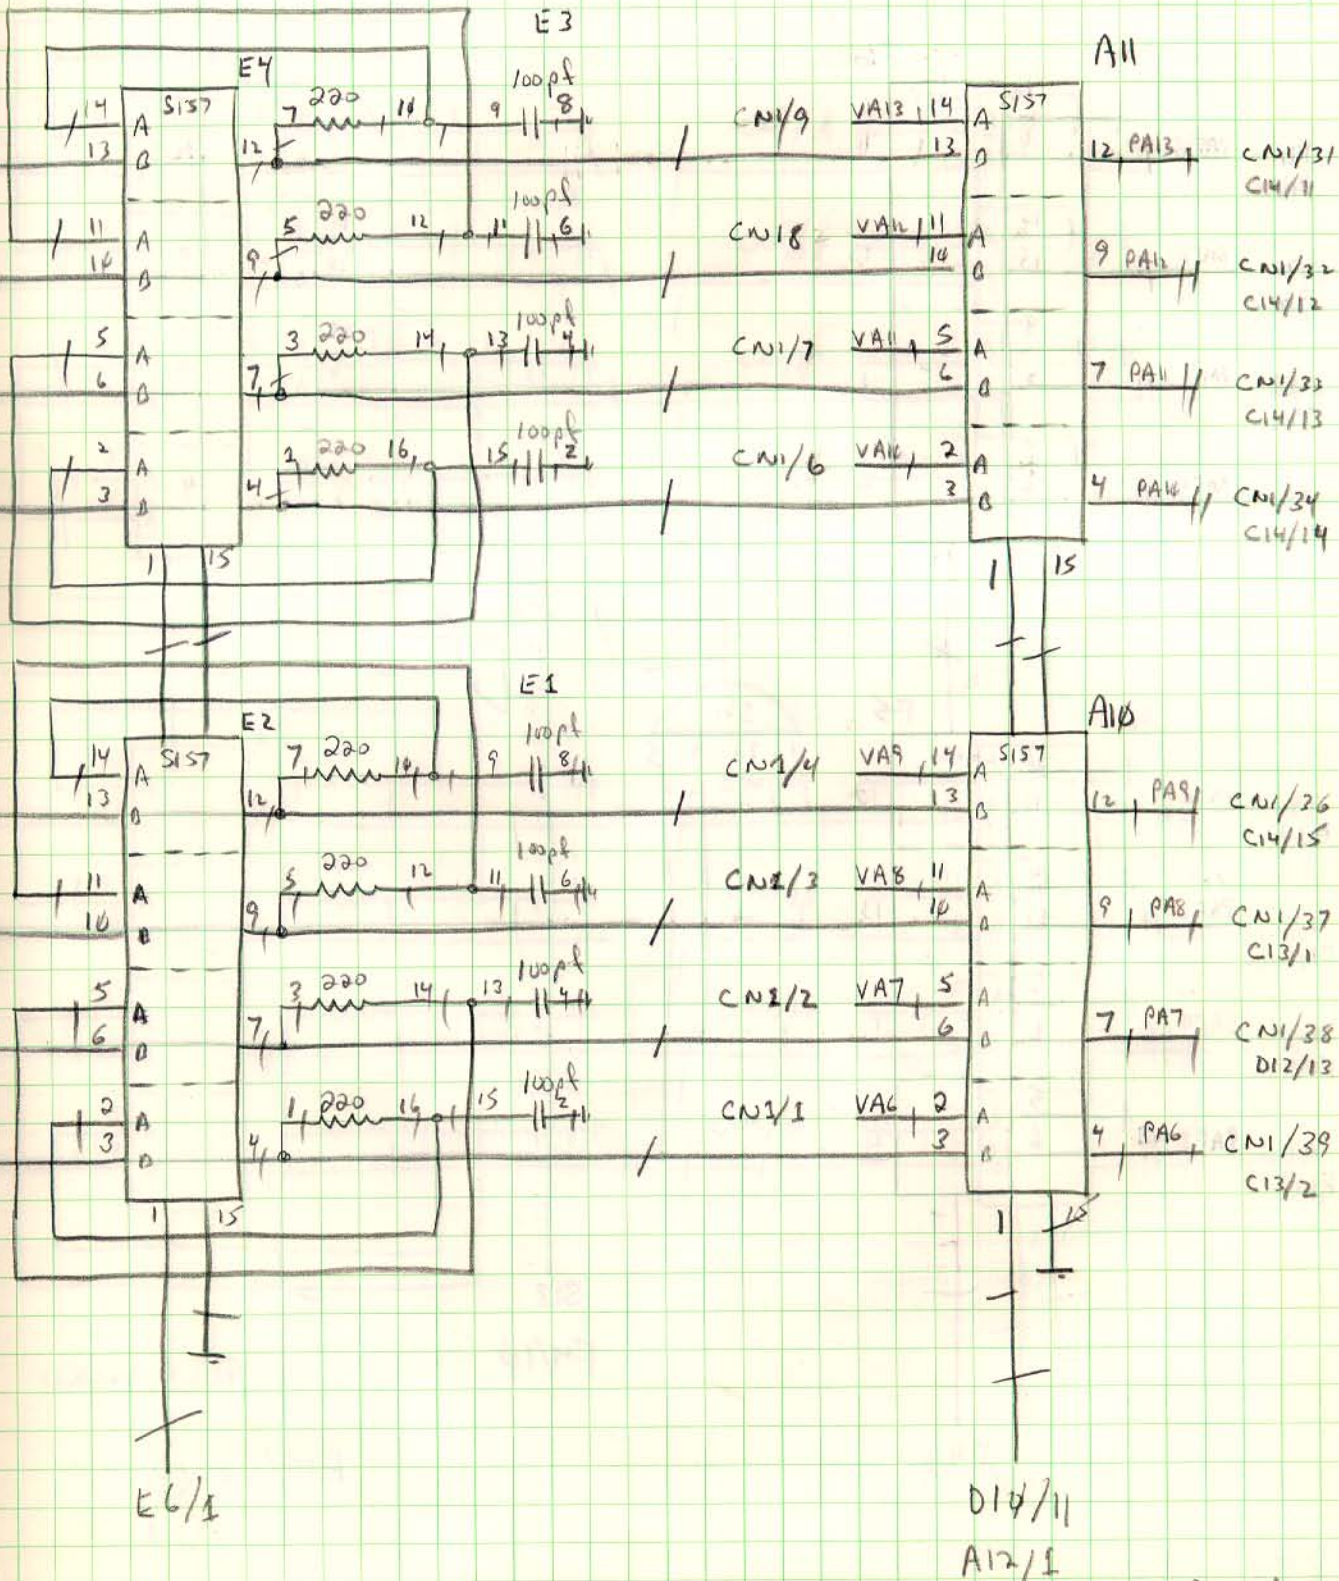 E3
E4
A11
S157
S157
14 A
7 220 10
9 100pf 8
CN1/9 VA13 14 A
13 B
12
13 B
12 PA13 CN1/31
C14/11
11 A
5 220 12
11 100pf 6
CN18 VA12 11 A
10 B
9
10 B
9 PA12 CN1/32
C14/12
5 A
3 220 14
13 100pf 4
CN1/7 VA11 5 A
6 B
7
6 B
7 PA11 CN1/33
C14/13
2 A
1 220 16
15 100pf 2
CN1/6 VA10 2 A
3 B
4
3 B
4 PA10 CN1/34
C14/14
1 15
1 15
E1
E2
A10
S157
S157
14 A
7 220 10
9 100pf 8
CN1/4 VA9 14 A
13 B
12
13 B
12 PA9 CN1/36
C14/15
11 A
5 220 12
11 100pf 6
CN1/3 VA8 11 A
10 B
9
10 B
9 PA8 CN1/37
C13/1
5 A
3 220 14
13 100pf 4
CN1/2 VA7 5 A
6 B
7
6 B
7 PA7 CN1/38
D12/13
2 A
1 220 16
15 100pf 2
CN1/1 VA6 2 A
3 B
4
3 B
4 PA6 CN1/39
C13/2
1 15
1 15
E6/1
D10/11
A12/1